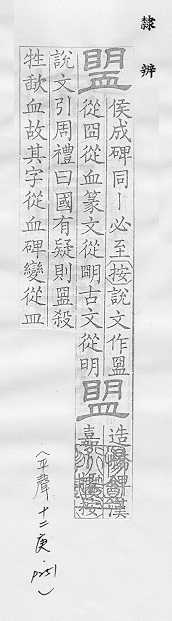 隸辨
盟
侯成碑同丨必至按說文作盟
從囧從血篆文從朙古文從明
說文引周禮曰國有疑則盟殺
牲歃血故其字從血碑變從皿
盟
造
漢
嘉
按
(平聲 十二庚. p251)